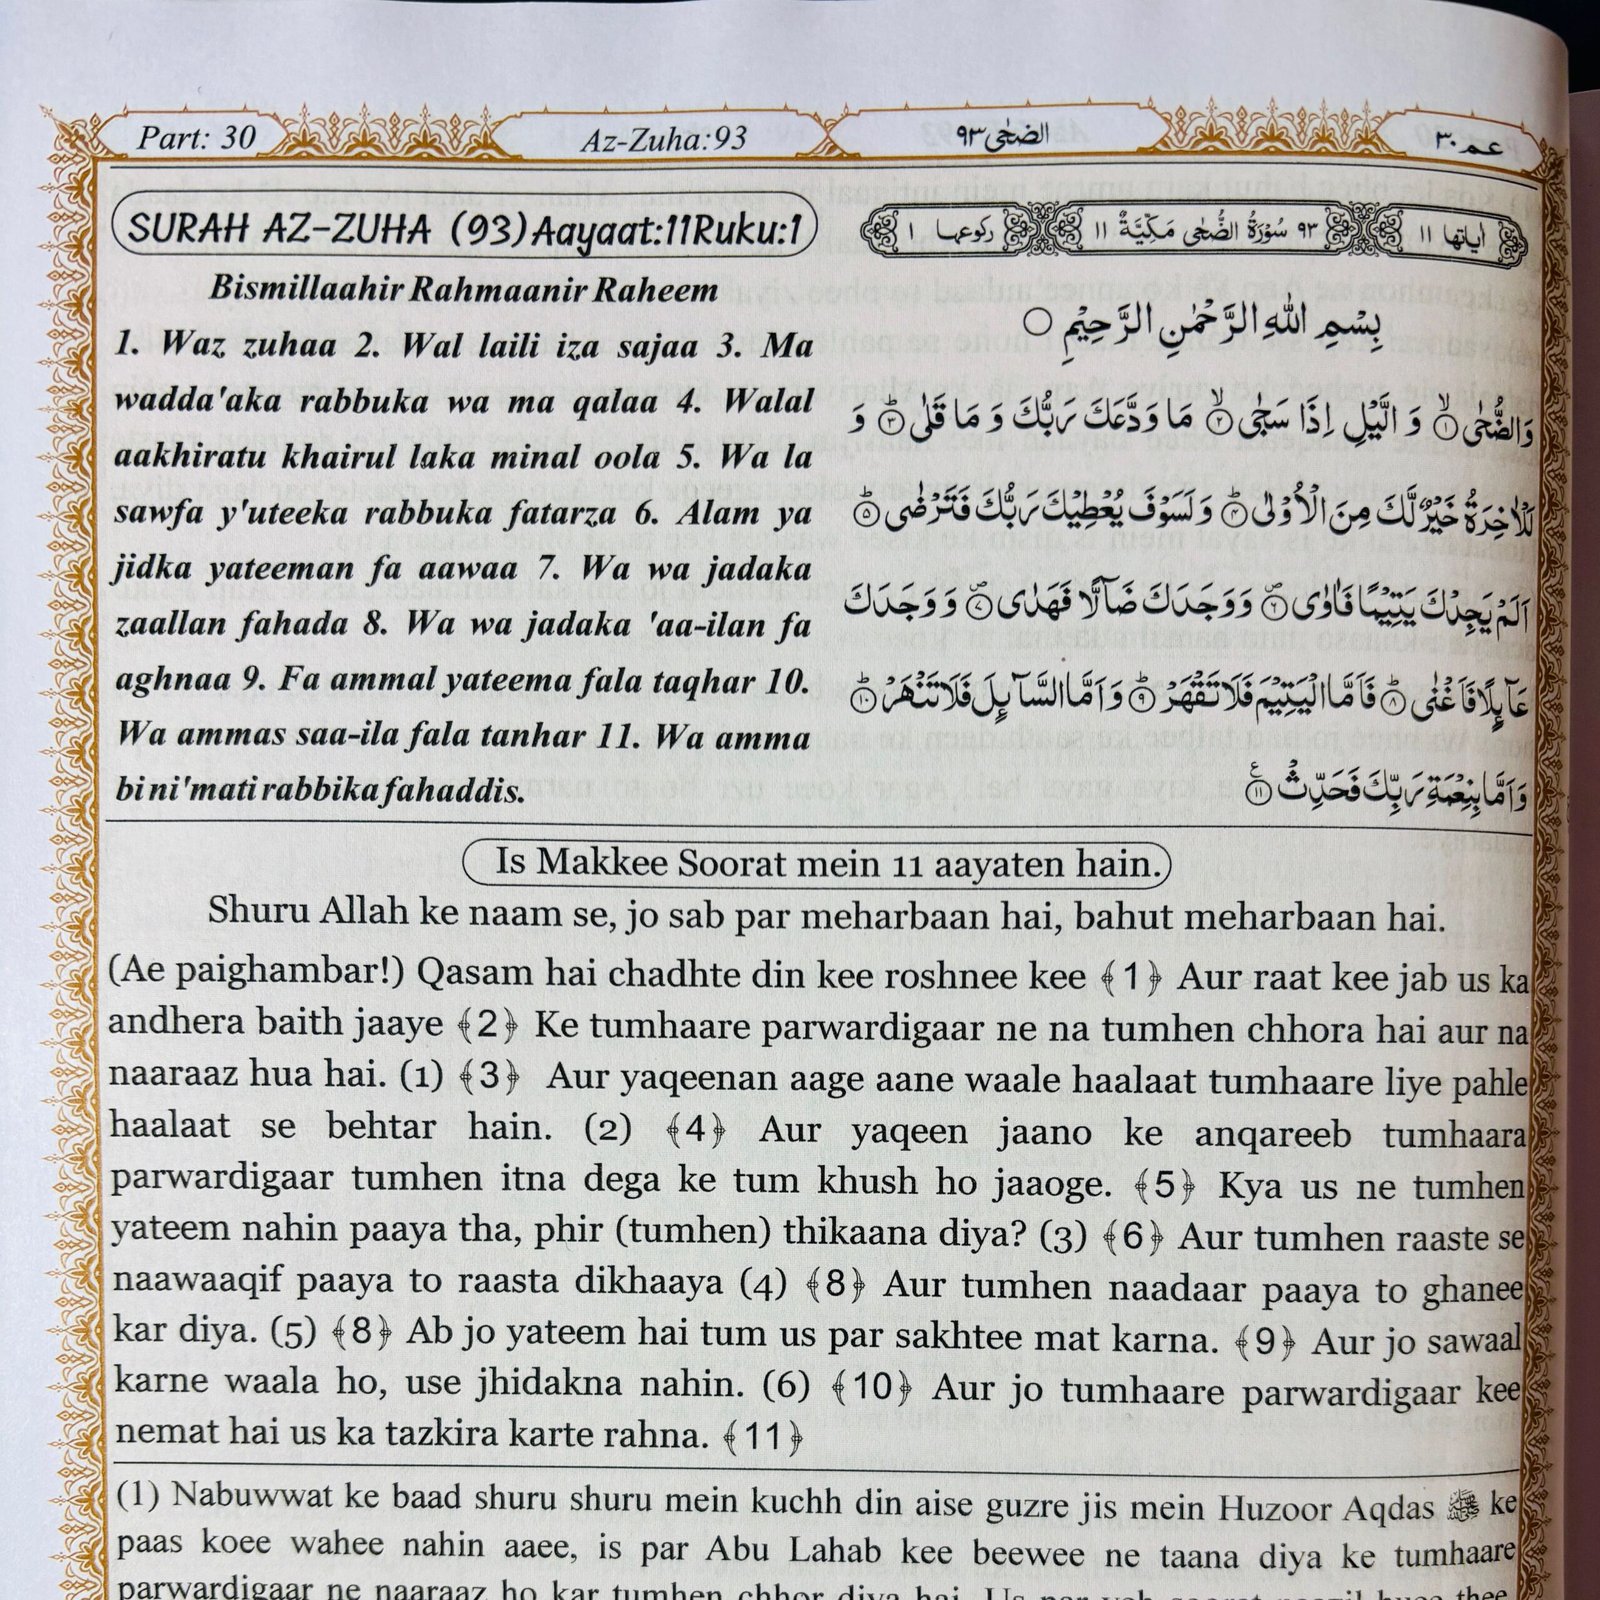 Part: 30
Az-Zuha:93
الضحى ٩٣
عم ٣٠
SURAH AZ-ZUHA (93) Aayaat:11Ruku:1
اياتها ١١
٩٣ سُوْرَةُ الضُّحٰى مَكِّيَّةٌ ١١
ركوعها ١
Bismillaahir Rahmaanir Raheem
1. Waz zuhaa 2. Wal laili iza sajaa 3. Ma
wadda'aka rabbuka wa ma qalaa 4. Walal
aakhiratu khairul laka minal oola 5. Wa la
sawfa y'uteeka rabbuka fatarza 6. Alam ya
jidka yateeman fa aawaa 7. Wa wa jadaka
zaallan fahada 8. Wa wa jadaka 'aa-ilan fa
aghnaa 9. Fa ammal yateema fala taqhar 10.
Wa ammas saa-ila fala tanhar 11. Wa amma
bi ni'mati rabbika fahaddis.
بِسْمِ اللّٰهِ الرَّحْمٰنِ الرَّحِيْمِ ○
وَالضُّحٰى ۙ﴿١﴾ وَ الَّيْلِ اِذَا سَجٰى ۙ﴿٢﴾ مَا وَدَّعَكَ رَبُّكَ وَ مَا قَلٰى ؕ﴿٣﴾ وَ
لَلْاٰخِرَةُ خَيْرٌ لَّكَ مِنَ الْاُوْلٰى ؕ﴿٤﴾ وَ لَسَوْفَ يُعْطِيْكَ رَبُّكَ فَتَرْضٰى ؕ﴿٥﴾
اَلَمْ يَجِدْكَ يَتِيْمًا فَاٰوٰى ۪﴿٦﴾ وَ وَجَدَكَ ضَآلًّا فَهَدٰى ۪﴿٧﴾ وَ وَجَدَكَ
عَآئِلًا فَاَغْنٰى ؕ﴿٨﴾ فَاَمَّا الْيَتِيْمَ فَلَا تَقْهَرْ ؕ﴿٩﴾ وَ اَمَّا السَّآئِلَ فَلَا تَنْهَرْ ؕ﴿١٠﴾
وَ اَمَّا بِنِعْمَةِ رَبِّكَ فَحَدِّثْ ﴿١١﴾ ع
Is Makkee Soorat mein 11 aayaten hain.
Shuru Allah ke naam se, jo sab par meharbaan hai, bahut meharbaan hai.
(Ae paighambar!) Qasam hai chadhte din kee roshnee kee ﴾1﴿ Aur raat kee jab us ka
andhera baith jaaye ﴾2﴿ Ke tumhaare parwardigaar ne na tumhen chhora hai aur na
naaraaz hua hai. (1) ﴾3﴿ Aur yaqeenan aage aane waale haalaat tumhaare liye pahle
haalaat se behtar hain. (2) ﴾4﴿ Aur yaqeen jaano ke anqareeb tumhaara
parwardigaar tumhen itna dega ke tum khush ho jaaoge. ﴾5﴿ Kya us ne tumhen
yateem nahin paaya tha, phir (tumhen) thikaana diya? (3) ﴾6﴿ Aur tumhen raaste se
naawaaqif paaya to raasta dikhaaya (4) ﴾8﴿ Aur tumhen naadaar paaya to ghanee
kar diya. (5) ﴾8﴿ Ab jo yateem hai tum us par sakhtee mat karna. ﴾9﴿ Aur jo sawaal
karne waala ho, use jhidakna nahin. (6) ﴾10﴿ Aur jo tumhaare parwardigaar kee
nemat hai us ka tazkira karte rahna. ﴾11﴿
(1) Nabuwwat ke baad shuru shuru mein kuchh din aise guzre jis mein Huzoor Aqdas ﷺ ke
paas koee wahee nahin aaee, is par Abu Lahab kee beewee ne taana diya ke tumhaare
parwardigaar ne naaraaz ho kar tumhen chhor diya hai. Us par yeh soorat naazil huee thee.